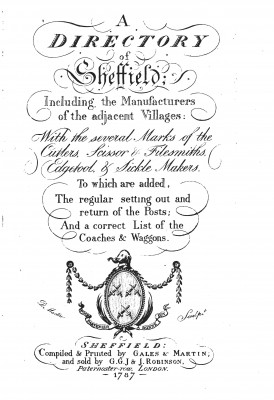 A
DIRECTORY
of
Sheffield;
Including the Manufacturers
of the adjacent Villages:
With the several Marks of the
Cutlers, Scissor & Filesmiths,
Edgetool, & Sickle Makers.
To which are added,
The regular setting out and
return of the Posts;
And a correct List of the
Coaches & Waggons.
Sculpt.
SHEFFIELD:
Compiled & Printed by GALES & MARTIN;
and sold by G.G.J & J. ROBINSON,
Paternoster-row, LONDON.
1787